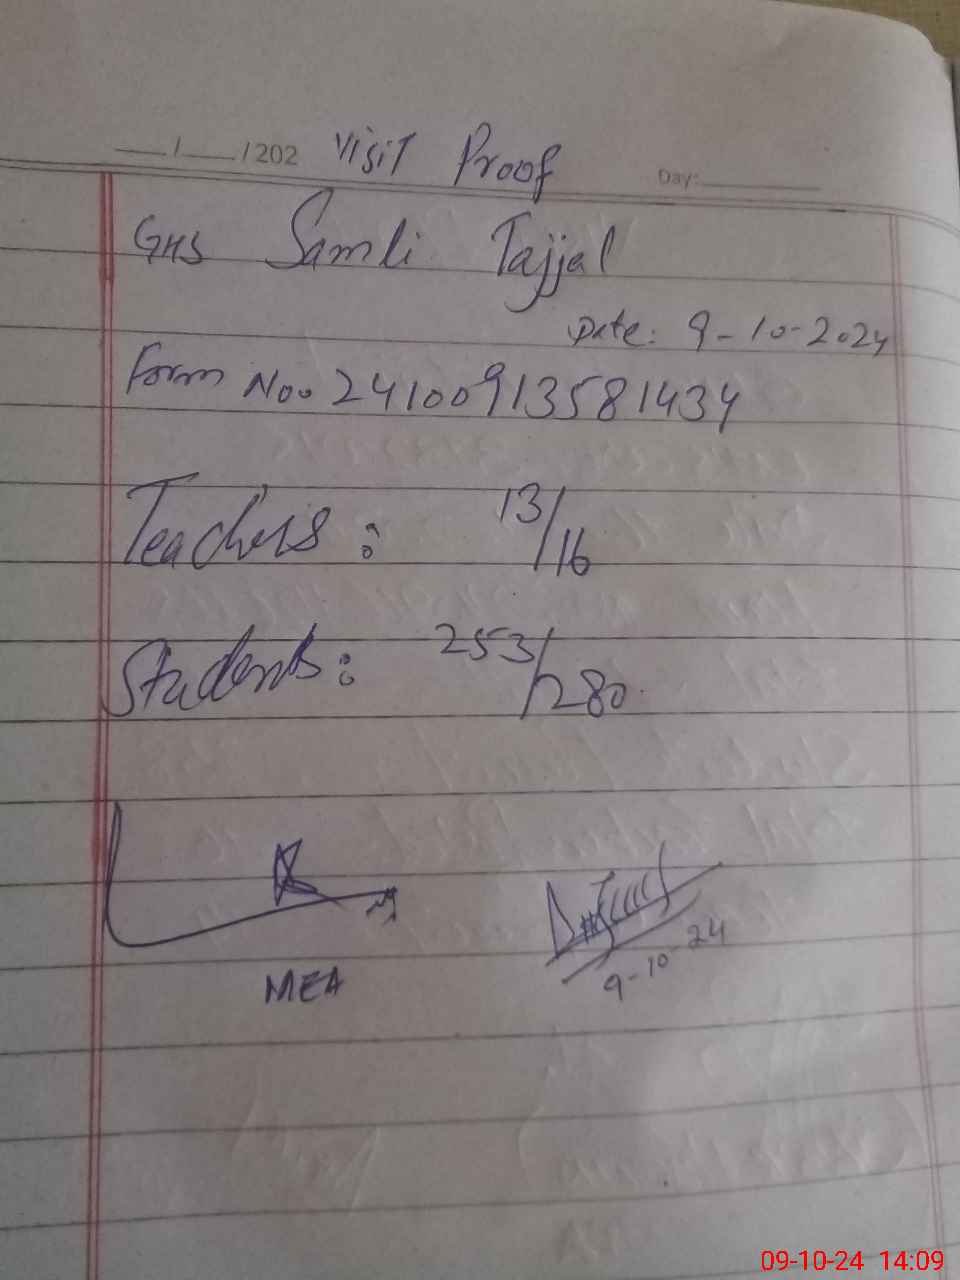 ___/___/202 Visit Proof
Day:
GHS Samli Tajjal
Date: 9-10-2024
Form No. 24100913581434
Teachers: 13/16
Students: 253/280
MEA
9-10-24
09-10-24 14:09